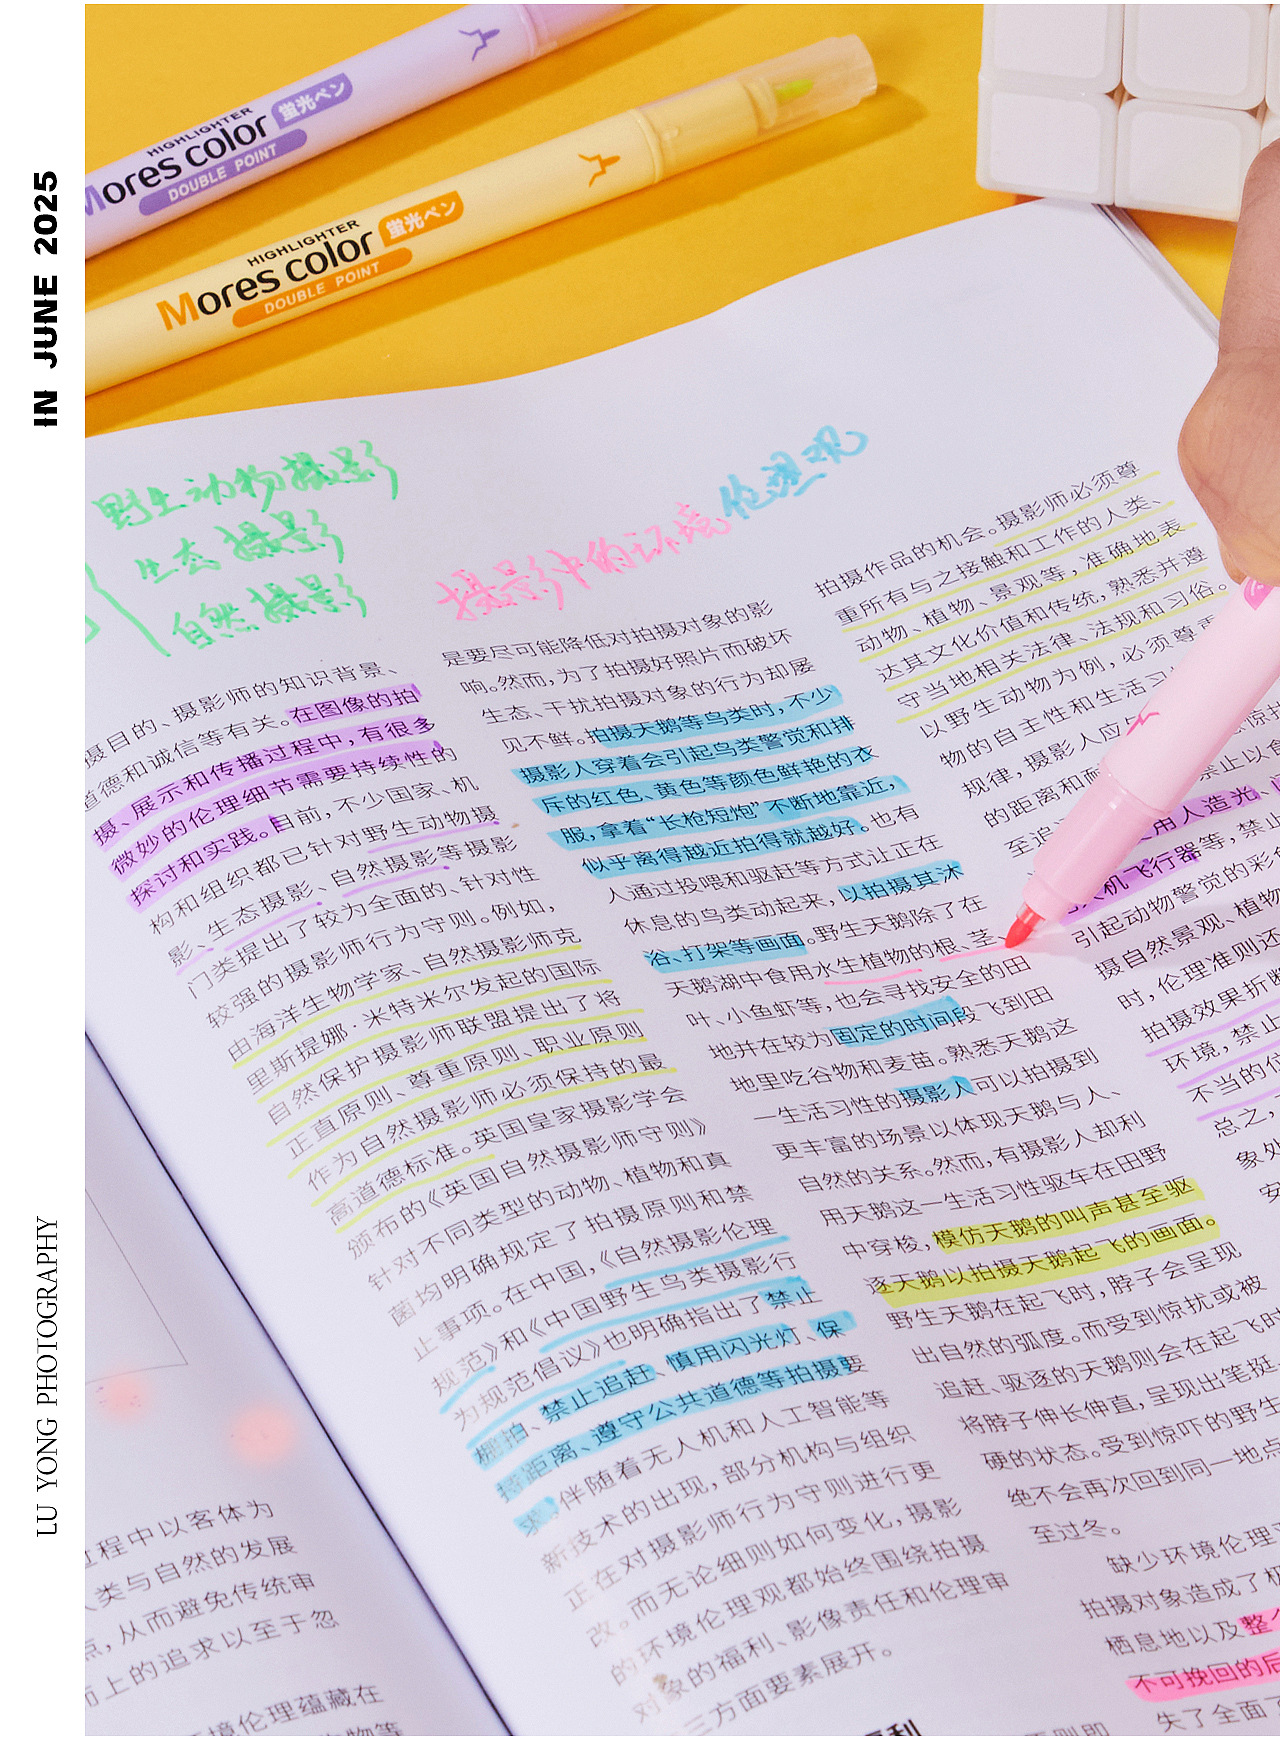 IN JUNE 2025
LU YONG PHOTOGRAPHY
HIGHLIGHTER
Mores color
蛍光ペン
DOUBLE POINT
HIGHLIGHTER
Mores color
蛍光ペン
DOUBLE POINT
野生动物摄影
生态摄影
自然摄影
摄影中的环境伦理观
摄目的、摄影师的知识背景、
道德和诚信等有关。在图像的拍
摄、展示和传播过程中，有很多
微妙的伦理细节需要持续性的
探讨和实践。目前，不少国家、机
构和组织都已针对野生动物摄
影、生态摄影、自然摄影等摄影
门类提出了较为全面的、针对性
较强的摄影师行为守则。例如，
由海洋生物学家、自然摄影师克
里斯提娜·米特米尔发起的国际
自然保护摄影师联盟提出了将
正直原则、尊重原则、职业原则
作为自然摄影师必须保持的最
高道德标准。英国皇家摄影学会
颁布的《英国自然摄影师守则》
针对不同类型的动物、植物和真
菌均明确规定了拍摄原则和禁
止事项。在中国，《自然摄影伦理
规范》和《中国野生鸟类摄影行
为规范倡议》也明确指出了禁止
棚拍、禁止追赶、慎用闪光灯、保
持距离、遵守公共道德等拍摄要
求。伴随着无人机和人工智能等
新技术的出现，部分机构与组织
正在对摄影师行为守则进行更
改。而无论细则如何变化，摄影
的环境伦理观都始终围绕拍摄
对象的福利、影像责任和伦理审
三方面要素展开。
是要尽可能降低对拍摄对象的影
响。然而，为了拍摄好照片而破坏
生态、干扰拍摄对象的行为却屡
见不鲜。拍摄天鹅等鸟类时，不少
摄影人穿着会引起鸟类警觉和排
斥的红色、黄色等颜色鲜艳的衣
服，拿着“长枪短炮”不断地靠近，
似乎离得越近拍得就越好。也有
人通过投喂和驱赶等方式让正在
休息的鸟类动起来，以拍摄其沐
浴、打架等画面。野生天鹅除了在
天鹅湖中食用水生植物的根、茎、
叶、小鱼虾等，也会寻找安全的田
地并在较为固定的时间段飞到田
地里吃谷物和麦苗。熟悉天鹅这
一生活习性的摄影人可以拍摄到
更丰富的场景以体现天鹅与人、
自然的关系。然而，有摄影人却利
用天鹅这一生活习性驱车在田野
中穿梭，模仿天鹅的叫声甚至驱
逐天鹅以拍摄天鹅起飞的画面。
野生天鹅在起飞时，脖子会呈现
出自然的弧度。而受到惊扰或被
追赶、驱逐的天鹅则会在起飞时
将脖子伸长伸直，呈现出笔挺
硬的状态。受到惊吓的野生
绝不会再次回到同一地点
至过冬。
缺少环境伦理
拍摄对象造成了
栖息地以及整个
不可挽回的后
失了全面
拍摄作品的机会。摄影师必须尊
重所有与之接触和工作的人类、
动物、植物、景观等，准确地表
达其文化价值和传统，熟悉并遵
守当地相关法律、法规和习俗。
以野生动物为例，必须尊重
物的自主性和生活习
规律，摄影人应
的距离和耐 禁止以食
至追 用人造光、
人机飞行器等，禁止
引起动物警觉的彩色
摄自然景观、植物
时，伦理准则还
拍摄效果折断
环境，禁止
不当的位
总之，
象处
安
过程中以客体为
人类与自然的发展
点，从而避免传统审
而上的追求以至于忽
境伦理蕴藏在